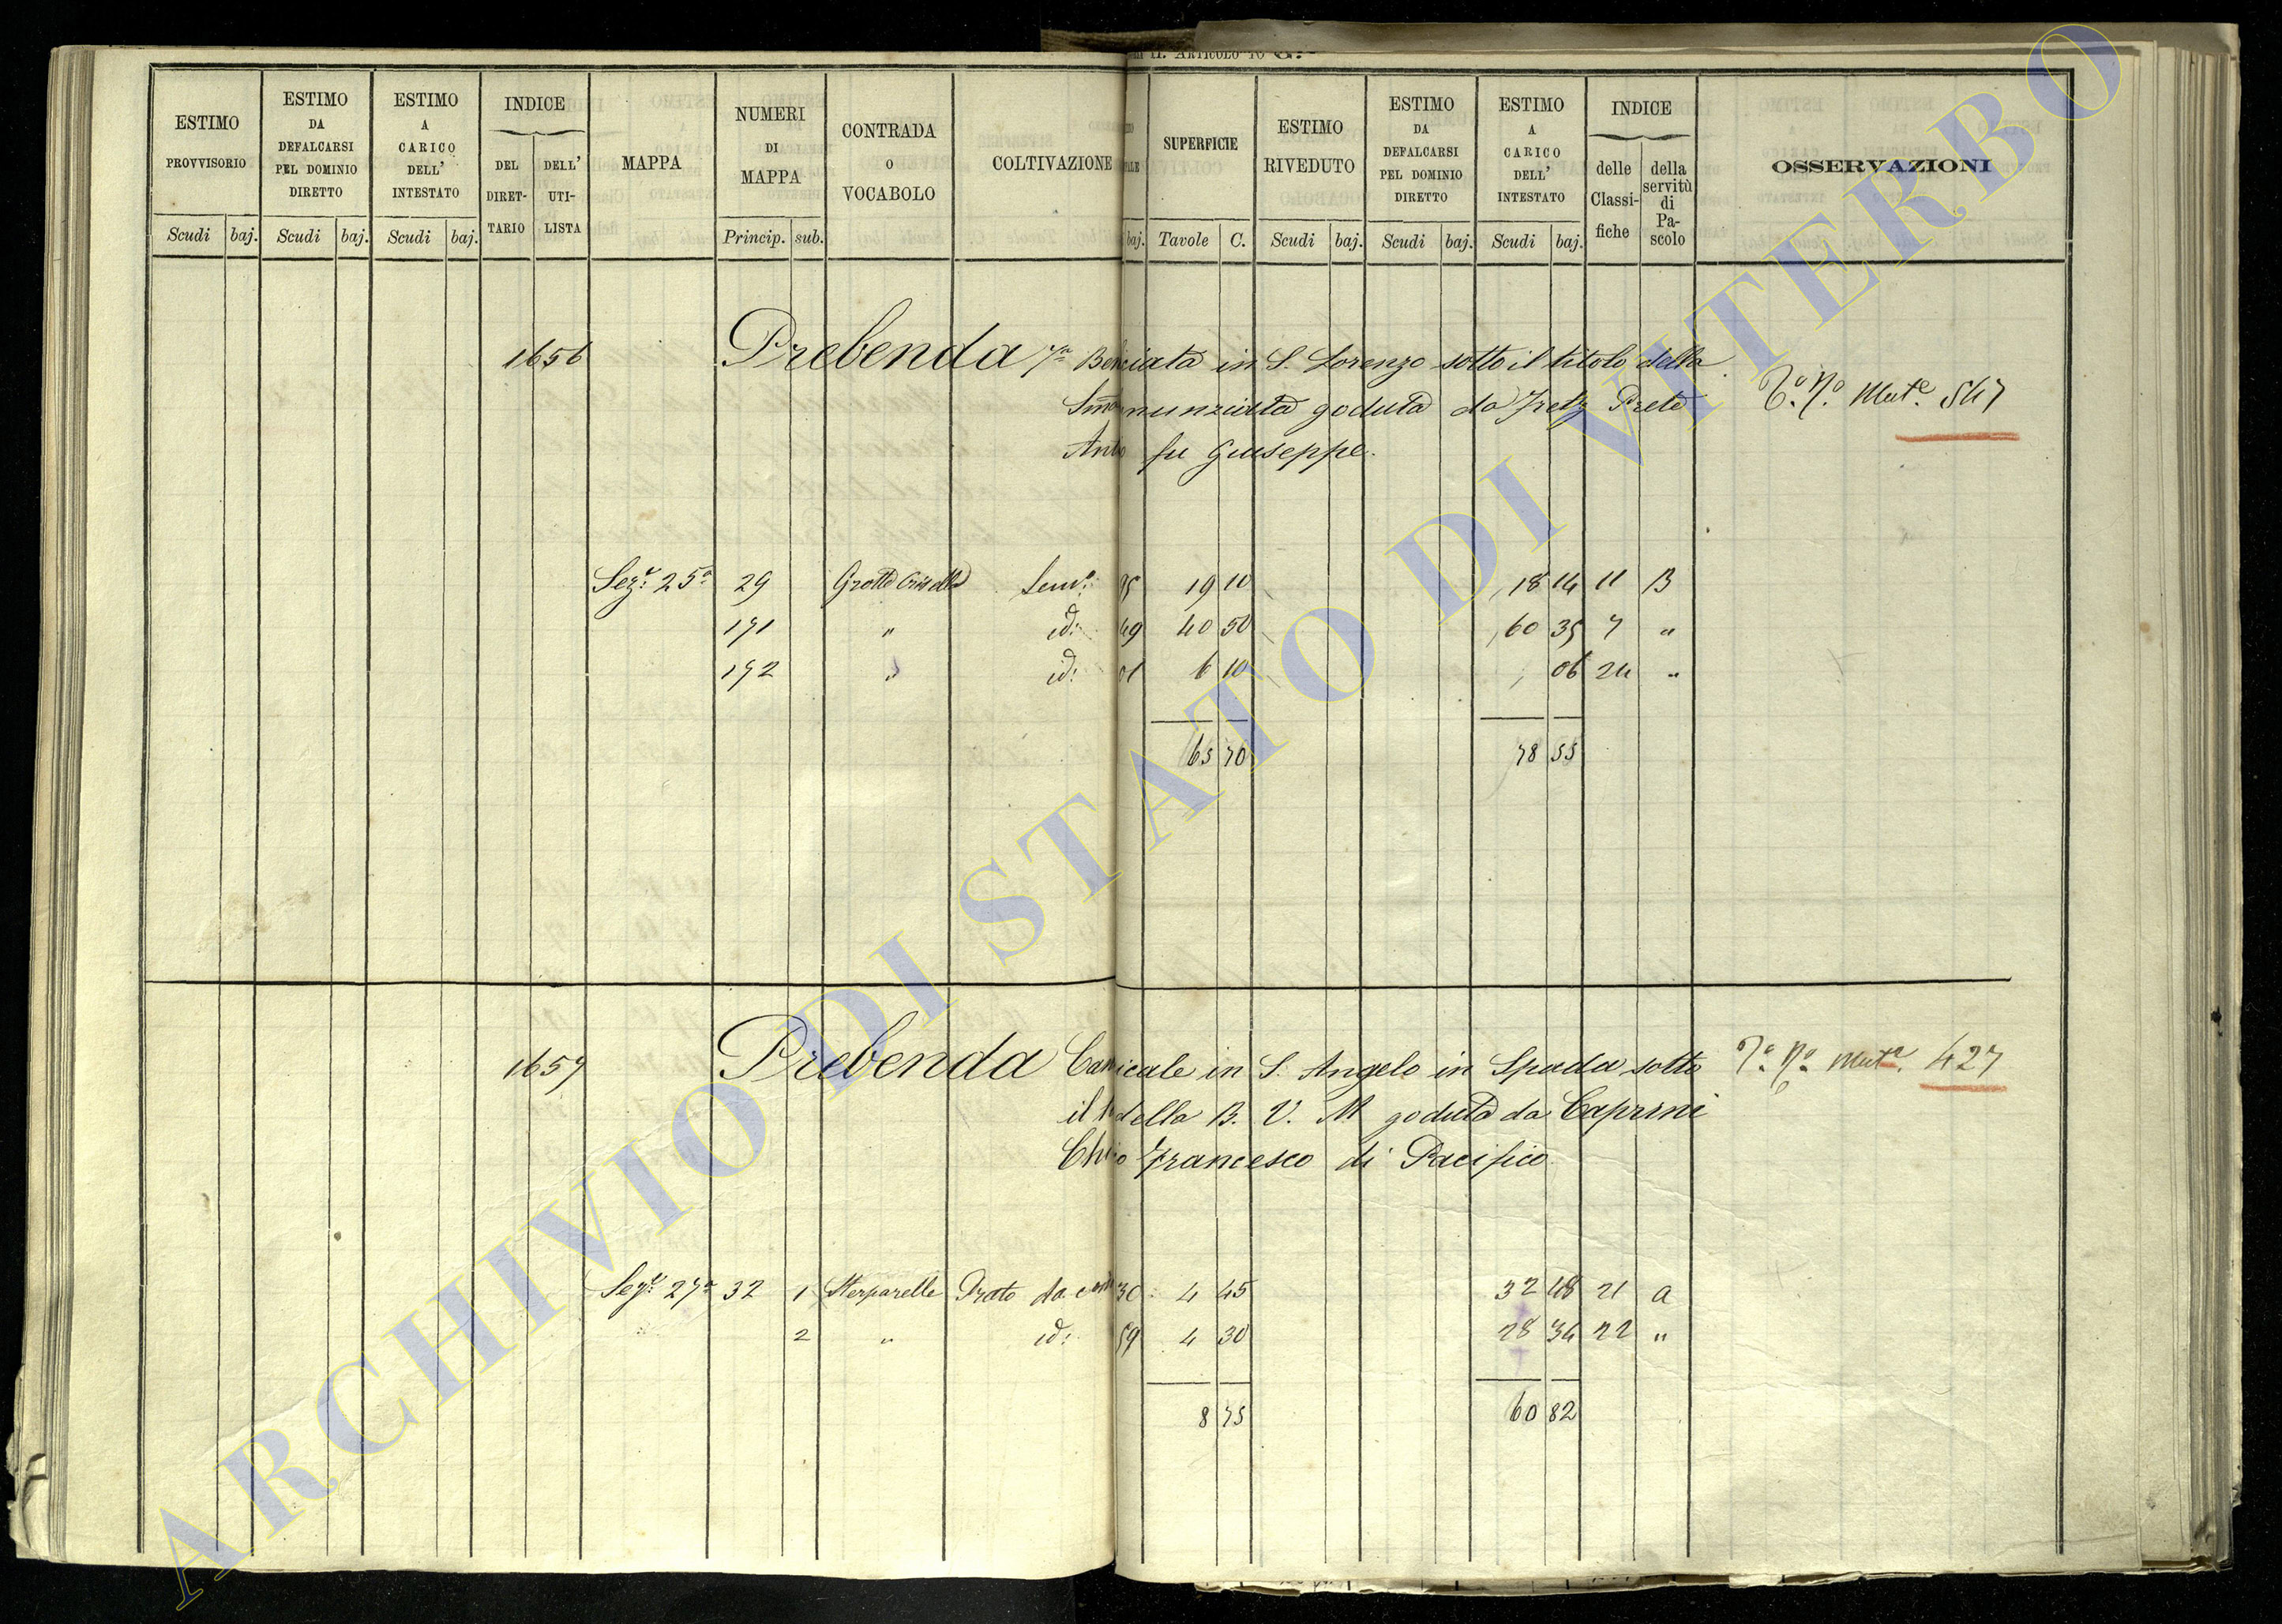 ESTIMO PROVVISORIO
ESTIMO DA DEFALCARSI PEL DOMINIO DIRETTO
ESTIMO A CARICO DELL' INTESTATO
INDICE
DEL DIRET-TARIO
DELL' UTI-LISTA
MAPPA
NUMERI DI MAPPA
CONTRADA O VOCABOLO
COLTIVAZIONE
SUPERFICIE
ESTIMO RIVEDUTO
ESTIMO DA DEFALCARSI PEL DOMINIO DIRETTO
ESTIMO A CARICO DELL' INTESTATO
INDICE
delle Classi-fiche
della servitù di Pa-scolo
OSSERVAZIONI
Scudi baj. Scudi baj. Scudi baj. Princip. sub. baj. Tavole C. Scudi baj. Scudi baj. Scudi baj.
1656 Prebenda 7a in S. Lorenzo sotto il titolo della
goduta da Prete
fu Giuseppe.
Mute 547
Sezne 25a 29 Grotte Semo 19 10 18 14 11 B
171 " id: 49 40 50 60 35 7 "
172 " id: 01 6 10 06 24 "
65 70 78 55
1657 Prebenda in S. Angelo in Spada sotto
il della B. V. M goduta da Caprini
Francesco di Pacifico
Muta 427
Sezne 27a 32 1 Sterparelle Prato da 30 4 45 32 48 21 a
2 " id: 59 4 30 28 34 22 "
8 75 60 82
ARCHIVIO DI STATO DI VITERBO